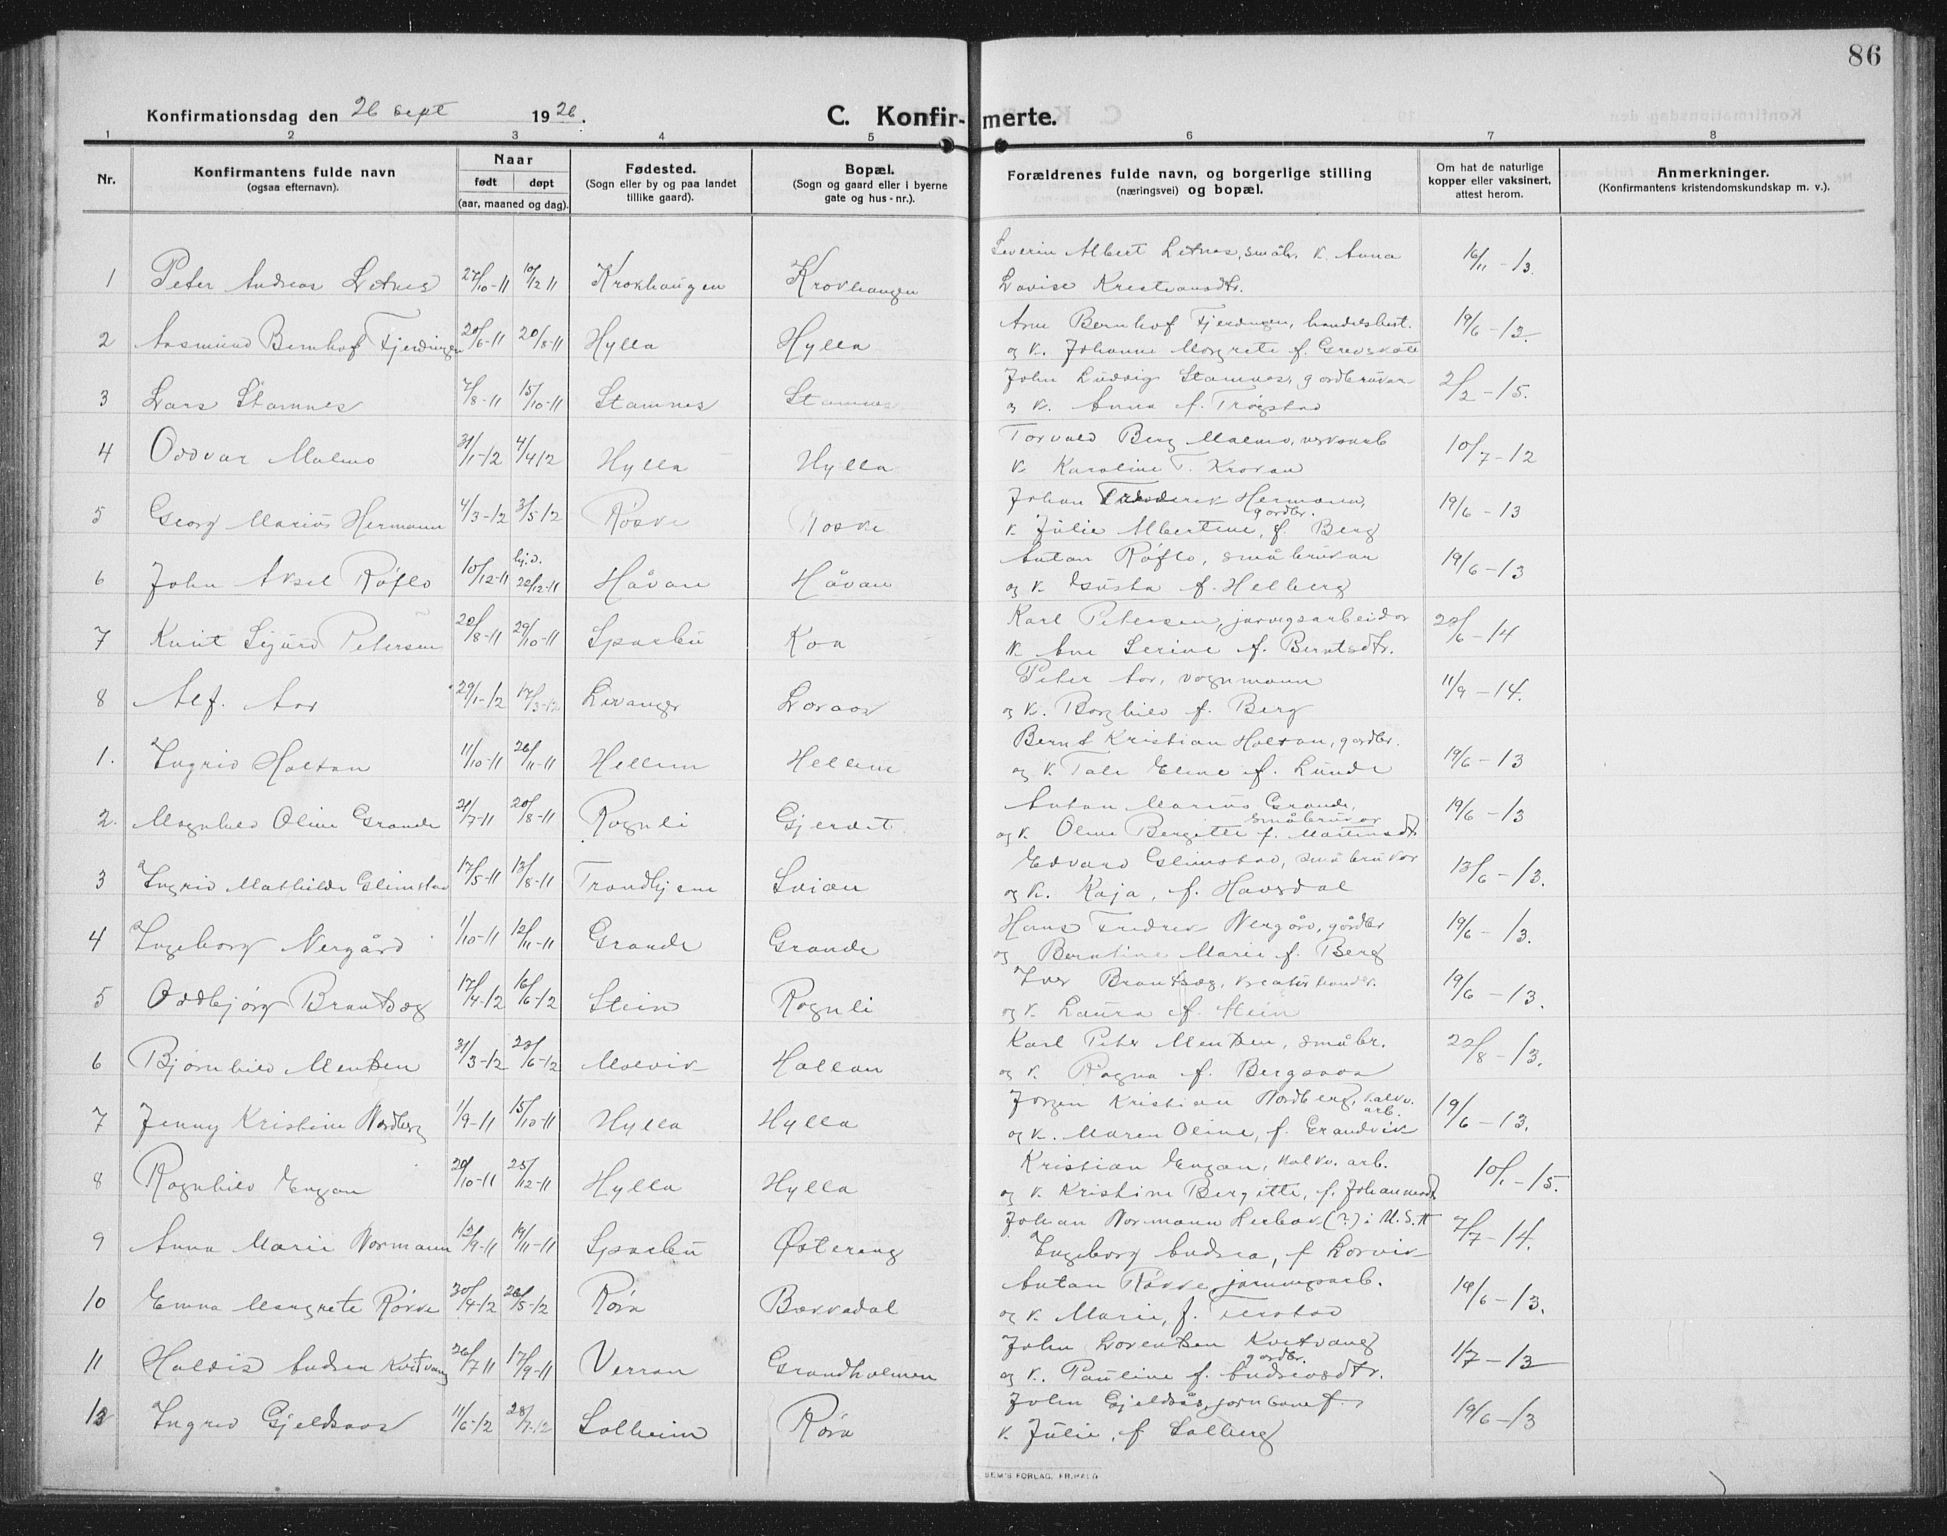 86
Konfirmationsdag den 26 sept 1926.
C. Konfirmerte.
1 2 3 4 5 6 7 8
Nr.
Konfirmantens fulde navn (ogsaa efternavn).
Naar født døpt (aar, maaned og dag).
Fødested. (Sogn eller by og paa landet tillike gaard).
Bopæl. (Sogn og gaard eller i byerne gate og hus-nr.).
Forældrenes fulde navn, og borgerlige stilling (næringsvei) og bopæl.
Om hat de naturlige kopper eller vaksinert, attest herom.
Anmerkninger. (Konfirmantens kristendomskundskap m. v.).
1 Peter Andreas Letnes 27/10-11 10/12 11 Krokhaugen Krokhaugen Severin Albert Letnes, småbr. k. Anna
Lovise Kristiansdtr. 16/11-13.
2 Aasmund Bernhof Fjerdingen 20/6-11 20/8-11 Hylla Hylla Arne Bernhof Fjerdingen, handelsbest.
og k. Johanne Margrete f. Grevskott 19/6-13.
3 Lars Stamnes 7/8-11 15/10-11 Stamnes Stamnes John Ludvig Stamnes, gardbruker
og k. Anna f. Trøgstad 2/2-15.
4 Oddvar Malmo 31/1-12 4/4 12 Hylla Hylla Torvald Berg Malmo, verksarb
k. Karoline F. Krovan 10/7-12
5 Georg Marius Hermann 4/3-12 3/5 12 Røske Røske Johan Frederik Hermann, gardbr.
k. Julie Albertine, f. Berg 19/6-13
6 John Aksel Røflo 10/12-11 hj.d. 22/12-11 Håvan Håvan Antan Røflo, småbruker
og k. Gusta f. Helberg 19/6-13
7 Knut Sigurd Petersen 20/8-11 29/10-11 Sparbu Koa Karl Petersen, jarvegsarbeider
k. Ane Serine f. Berntsdtr. 20/6-14
8 Alf. Aar 29/1-12 17/3-12 Levanger Loraas Peter Aar, vognmann
og k. Borghild f. Berg 11/9-14.
1. Ingrid Holtan 11/10-11 26/11-11 Hellem Hellem Bernt Kristian Holtan, gardbr.
og k. Tale Eline f. Lunde 19/6-13
2. Magnhild Oline Grande 21/7-11 20/8-11 Rognli Gjerdet Antan Marius Grande, småbruker
og k. Oline Bergitte f. Martinsdt. 19/6-13
3 Ingrid Mathilde Glimstad 17/5-11 13/8-11 Trondhjem Svian Edvard Glimstad, småbruker
og k. Kaja, f. Havsdal 13/6-13.
4 Ingeborg Nergård 1/10-11 12/11-11 Grande Grande Hans Fredrik Nergård, gårdbr
og Berntine Marie f. Berg 19/6-13.
5 Oddbjørg Brandtsæg 17/4-12 16/6-12 Stein Rognli Iver Brandtsæg, kreaturhandl.
og k. Laura f. Stein 19/6-13.
6 Bjørnhild Mentzen 31/3-12 23/6-12 Malvik Hallan Karl Peter Mentzen, småbr.
og k. Ragna f. Bergsaas 22/8-13.
7 Jenny Kristine Nordberg 1/9-11 15/10-11 Hylla Hylla Jørgen Kristian Nordberg, kalkv. arb.
og k. Maren Oline, f. Grandvik 19/6-13.
8 Ragnhild Engan 20/10-11 25/12-11 Hylla Hylla Kristian Engan, kalkv. arb.
og k. Kristine Bergitte, f. Johannesdt. 10/1-15.
9 Anna Marie Normann 12/9-11 19/11-11 Sparbu Østerang Johan Normann (?) i U.S.A
Ingeborg Andrea, f Lorvik 7/7-14.
10 Emma Margrete Røvve 30/4-12 26/5-12 Røra Bækkadal Antan Røvve, jarnvegsarb.
og k. Marie, f. Ferstad 19/6-13.
11 Haldis Andrea Kvitvang 26/7 11 17/9-11 Verran Grandholmen John Lorentzen Kvitvang gardbr.
og k. Pauline f. Andreasdtr. 1/7-13
12 Ingrid Gjeldsaas 11/6-12 28/7-12 Solheim Røra John Gjeldsås, jornbanef.
k. Julie, f Solberg 19/6-13
SEM'S FORLAG, FR.HALD